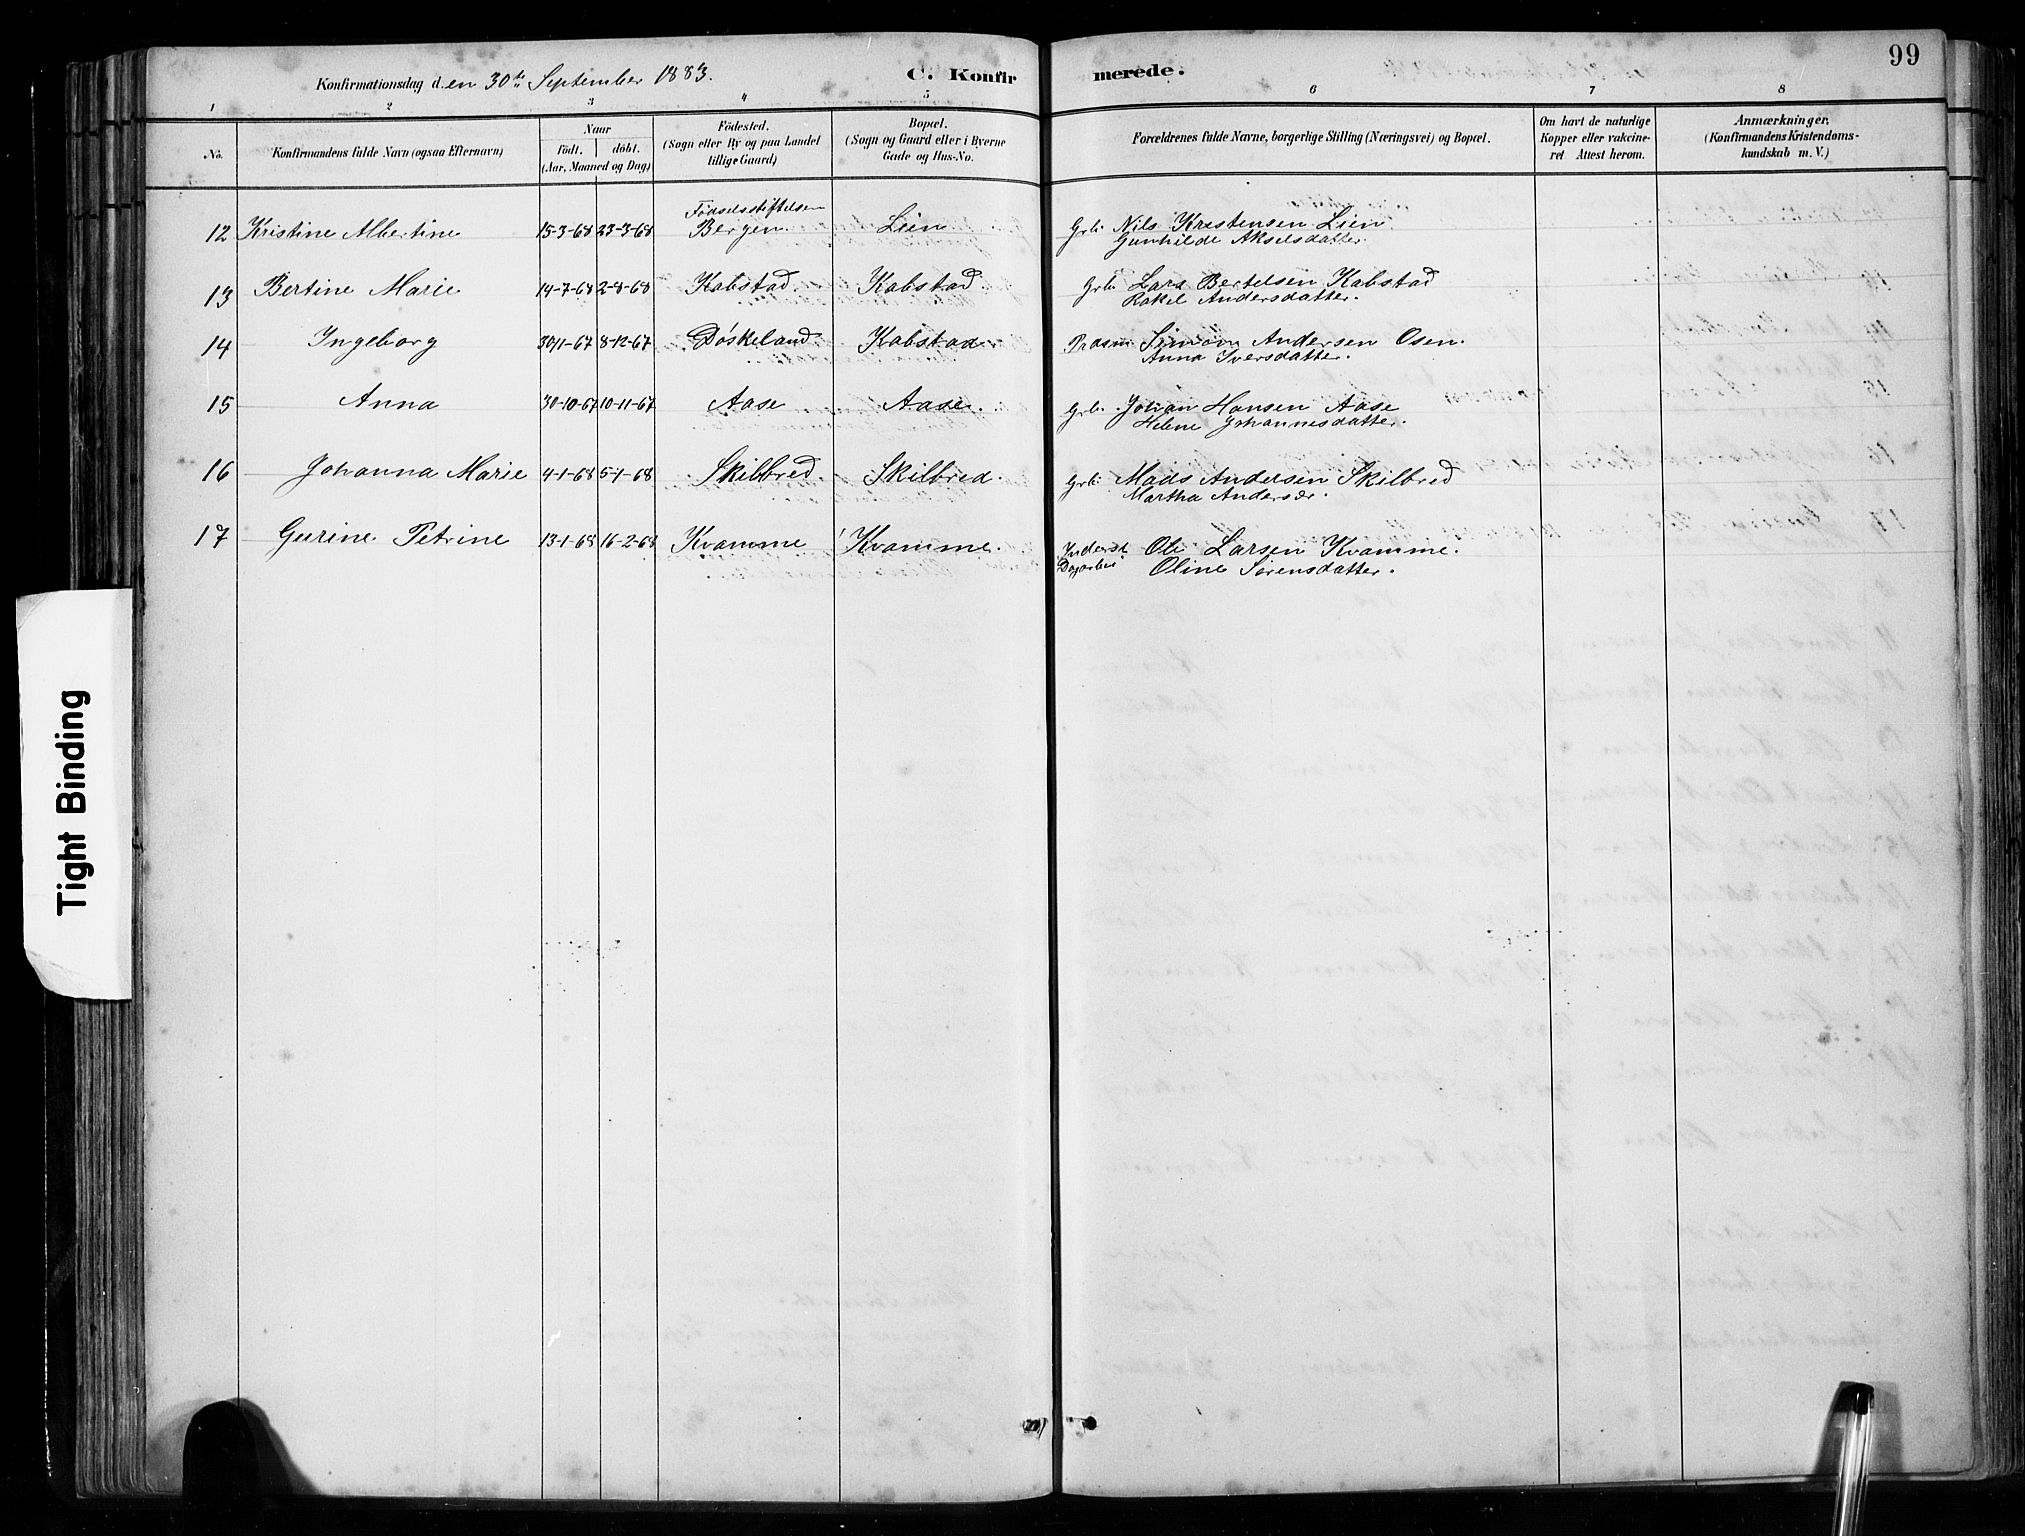 99
Konfirmationsdag den 30te September 1883.
C. Konfirmerede.
1 2 3 4 5 6 7 8
No.
Konfirmandens fulde Navn (ogsaa Efternavn)
Naar
født. døbt.
(Aar, Maaned og Dag)
Födested.
(Sogn eller By og paa Landet
tillige Gaard)
Bopæl.
(Sogn og Gaard eller i Byerne
Gade og Hus-No.
Forældrenes fulde Navne, borgerlige Stilling (Næringsvei) og Bopæl.
Om havt de naturlige
Kopper eller vakcine-
ret Attest herom.
Anmærkninger.
(Konfirmandens Kristendoms-
kundskab m. V.)
12 Kristine Albertine 15-3-68 23-3-68 Fødselsstiftelsen Bergen Lien Grb. Nils Kristensen Lien
Gunhilde Akselsdatter.
13 Bertine Marie 14-7-68 2-8-68 Kabstad Kabstad Grb. Lars Bertelsen Kabstad
Rakel Andersdatter.
14 Ingeborg 30/1-67 8-12-67 Døskeland Kabstad Simon Andersen Osen.
Anna Iversdatter.
15 Anna 30-10-67 10-11-67 Aase Aase. Grb. Johan Hansen Aase
Helene Johannesdatter.
16 Johanna Marie 4-1-68 5-1-68 Skilbred. Skilbred. Grb. Mads Andersen Skilbred
Martha Andersdr.
17 Gurine Petrine 13-1-68 16-2-68 Kvamme Kvamme. Inderst Ole Larsen Kvamme.
Dagarbei Oline Sørensdatter.
Tight Binding